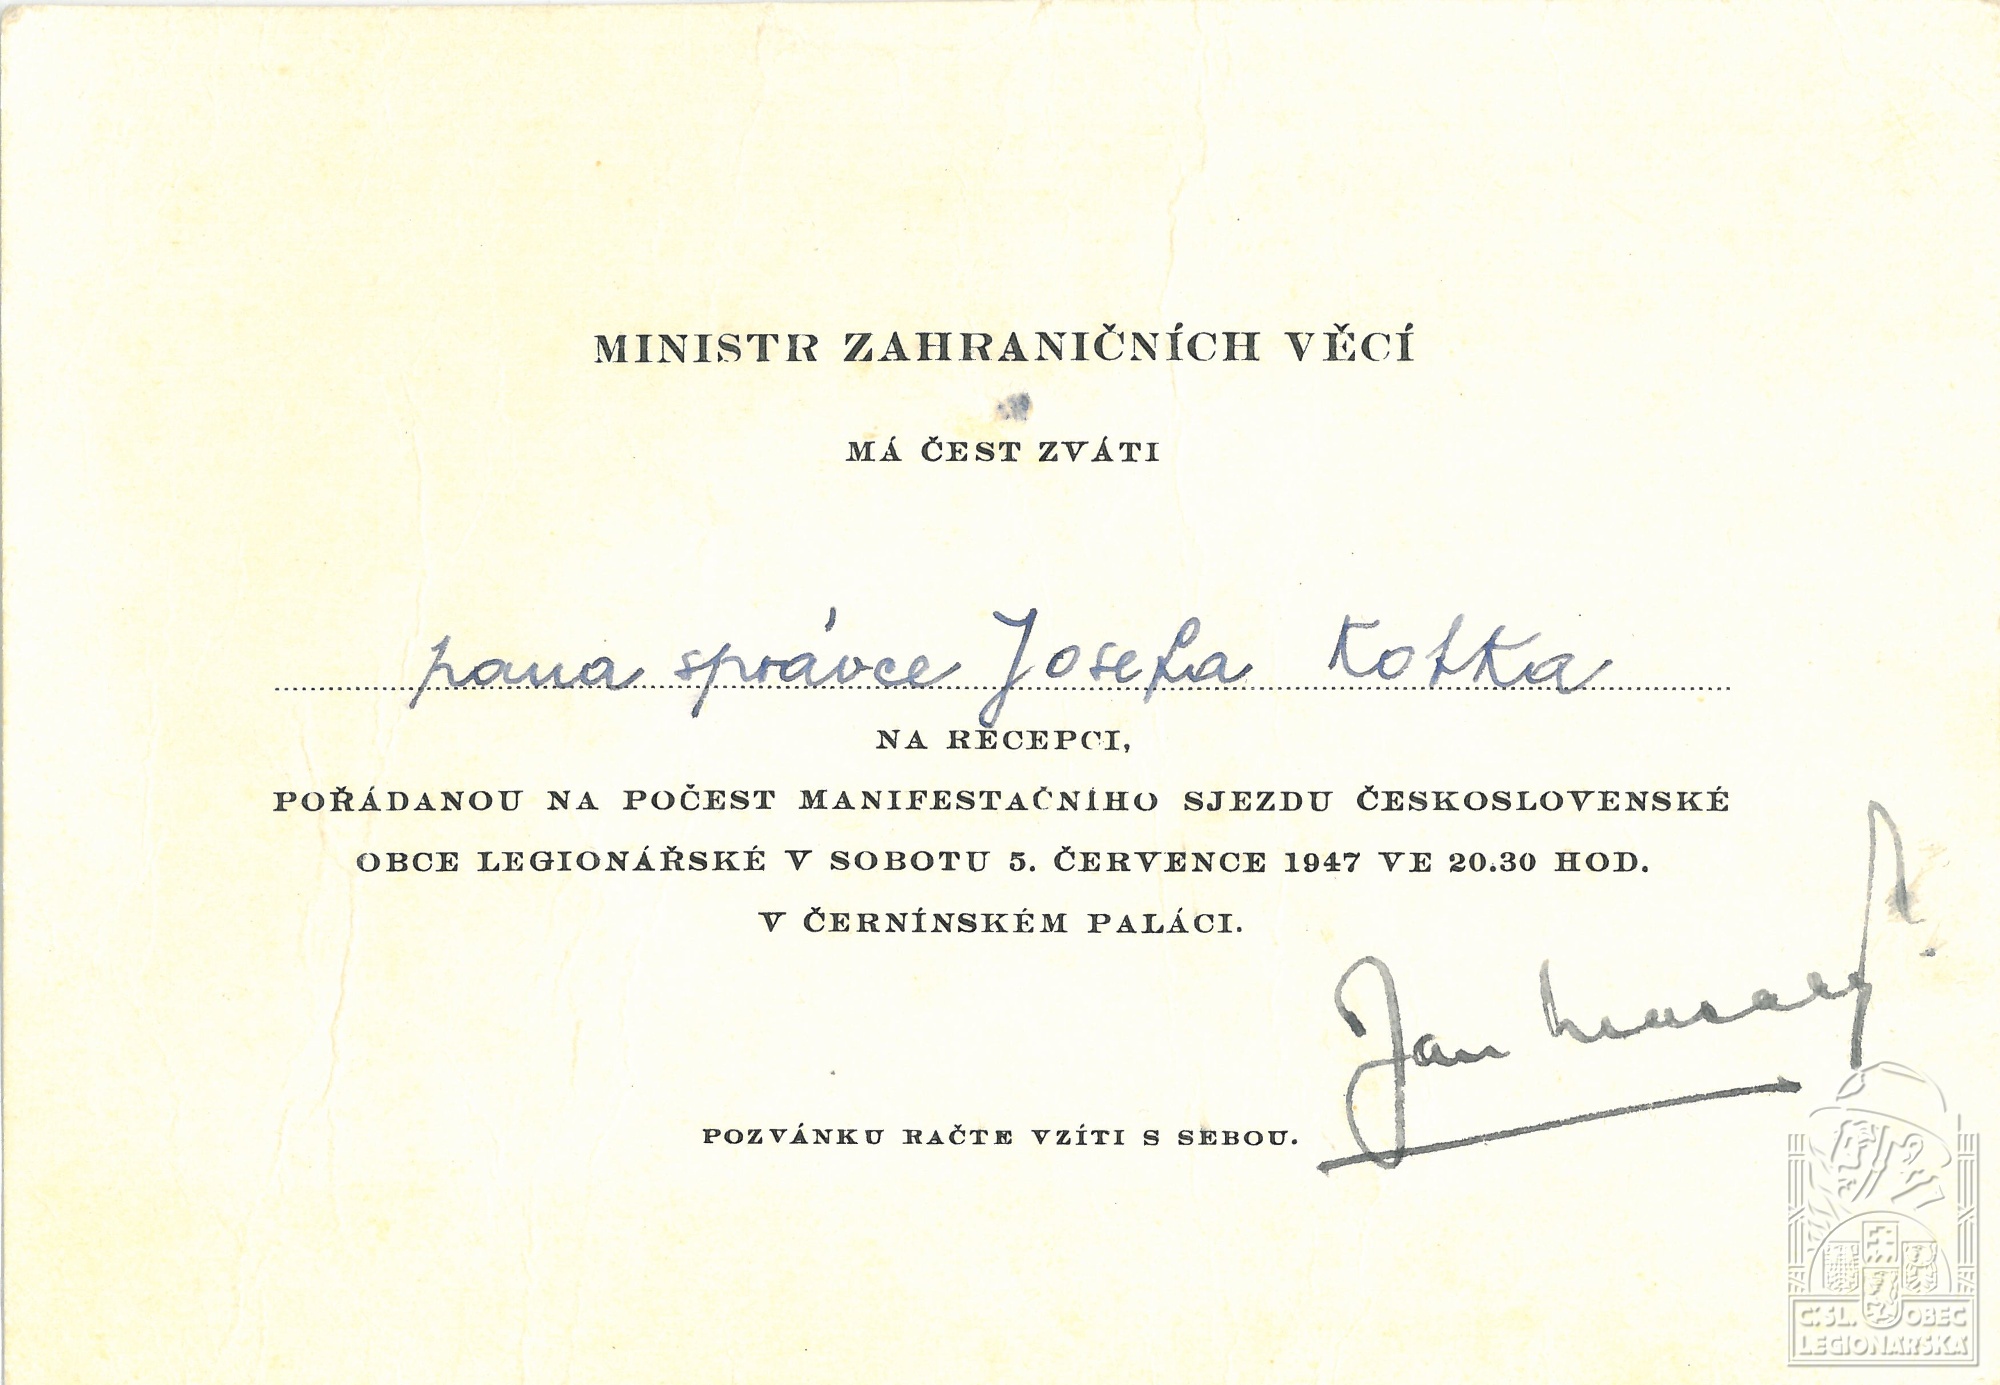 MINISTR ZAHRANIČNÍCH VĚCÍ
MÁ ČEST ZVÁTI
pana správce Josefa Kotka
NA RECEPCI,
POŘÁDANOU NA POČEST MANIFESTAČNÍHO SJEZDU ČESKOSLOVENSKÉ
OBCE LEGIONÁŘSKÉ V SOBOTU 5. ČERVENCE 1947 VE 20.30 HOD.
V ČERNÍNSKÉM PALÁCI.
Jan Masaryk
POZVÁNKU RAČTE VZÍTI S SEBOU.
Č.SL. OBEC
LEGIONÁŘSKÁ